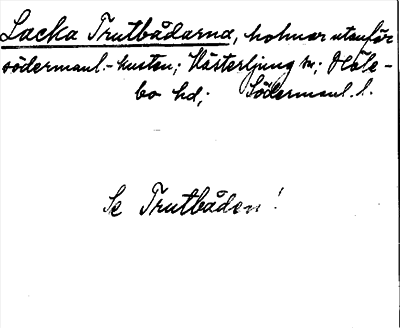 Lacka Trutbådarna, holmar utanför
södermanl.-kusten; Västerljung sn; Höle-
bo hd; Södermanl. l.
Se Trutbåden!